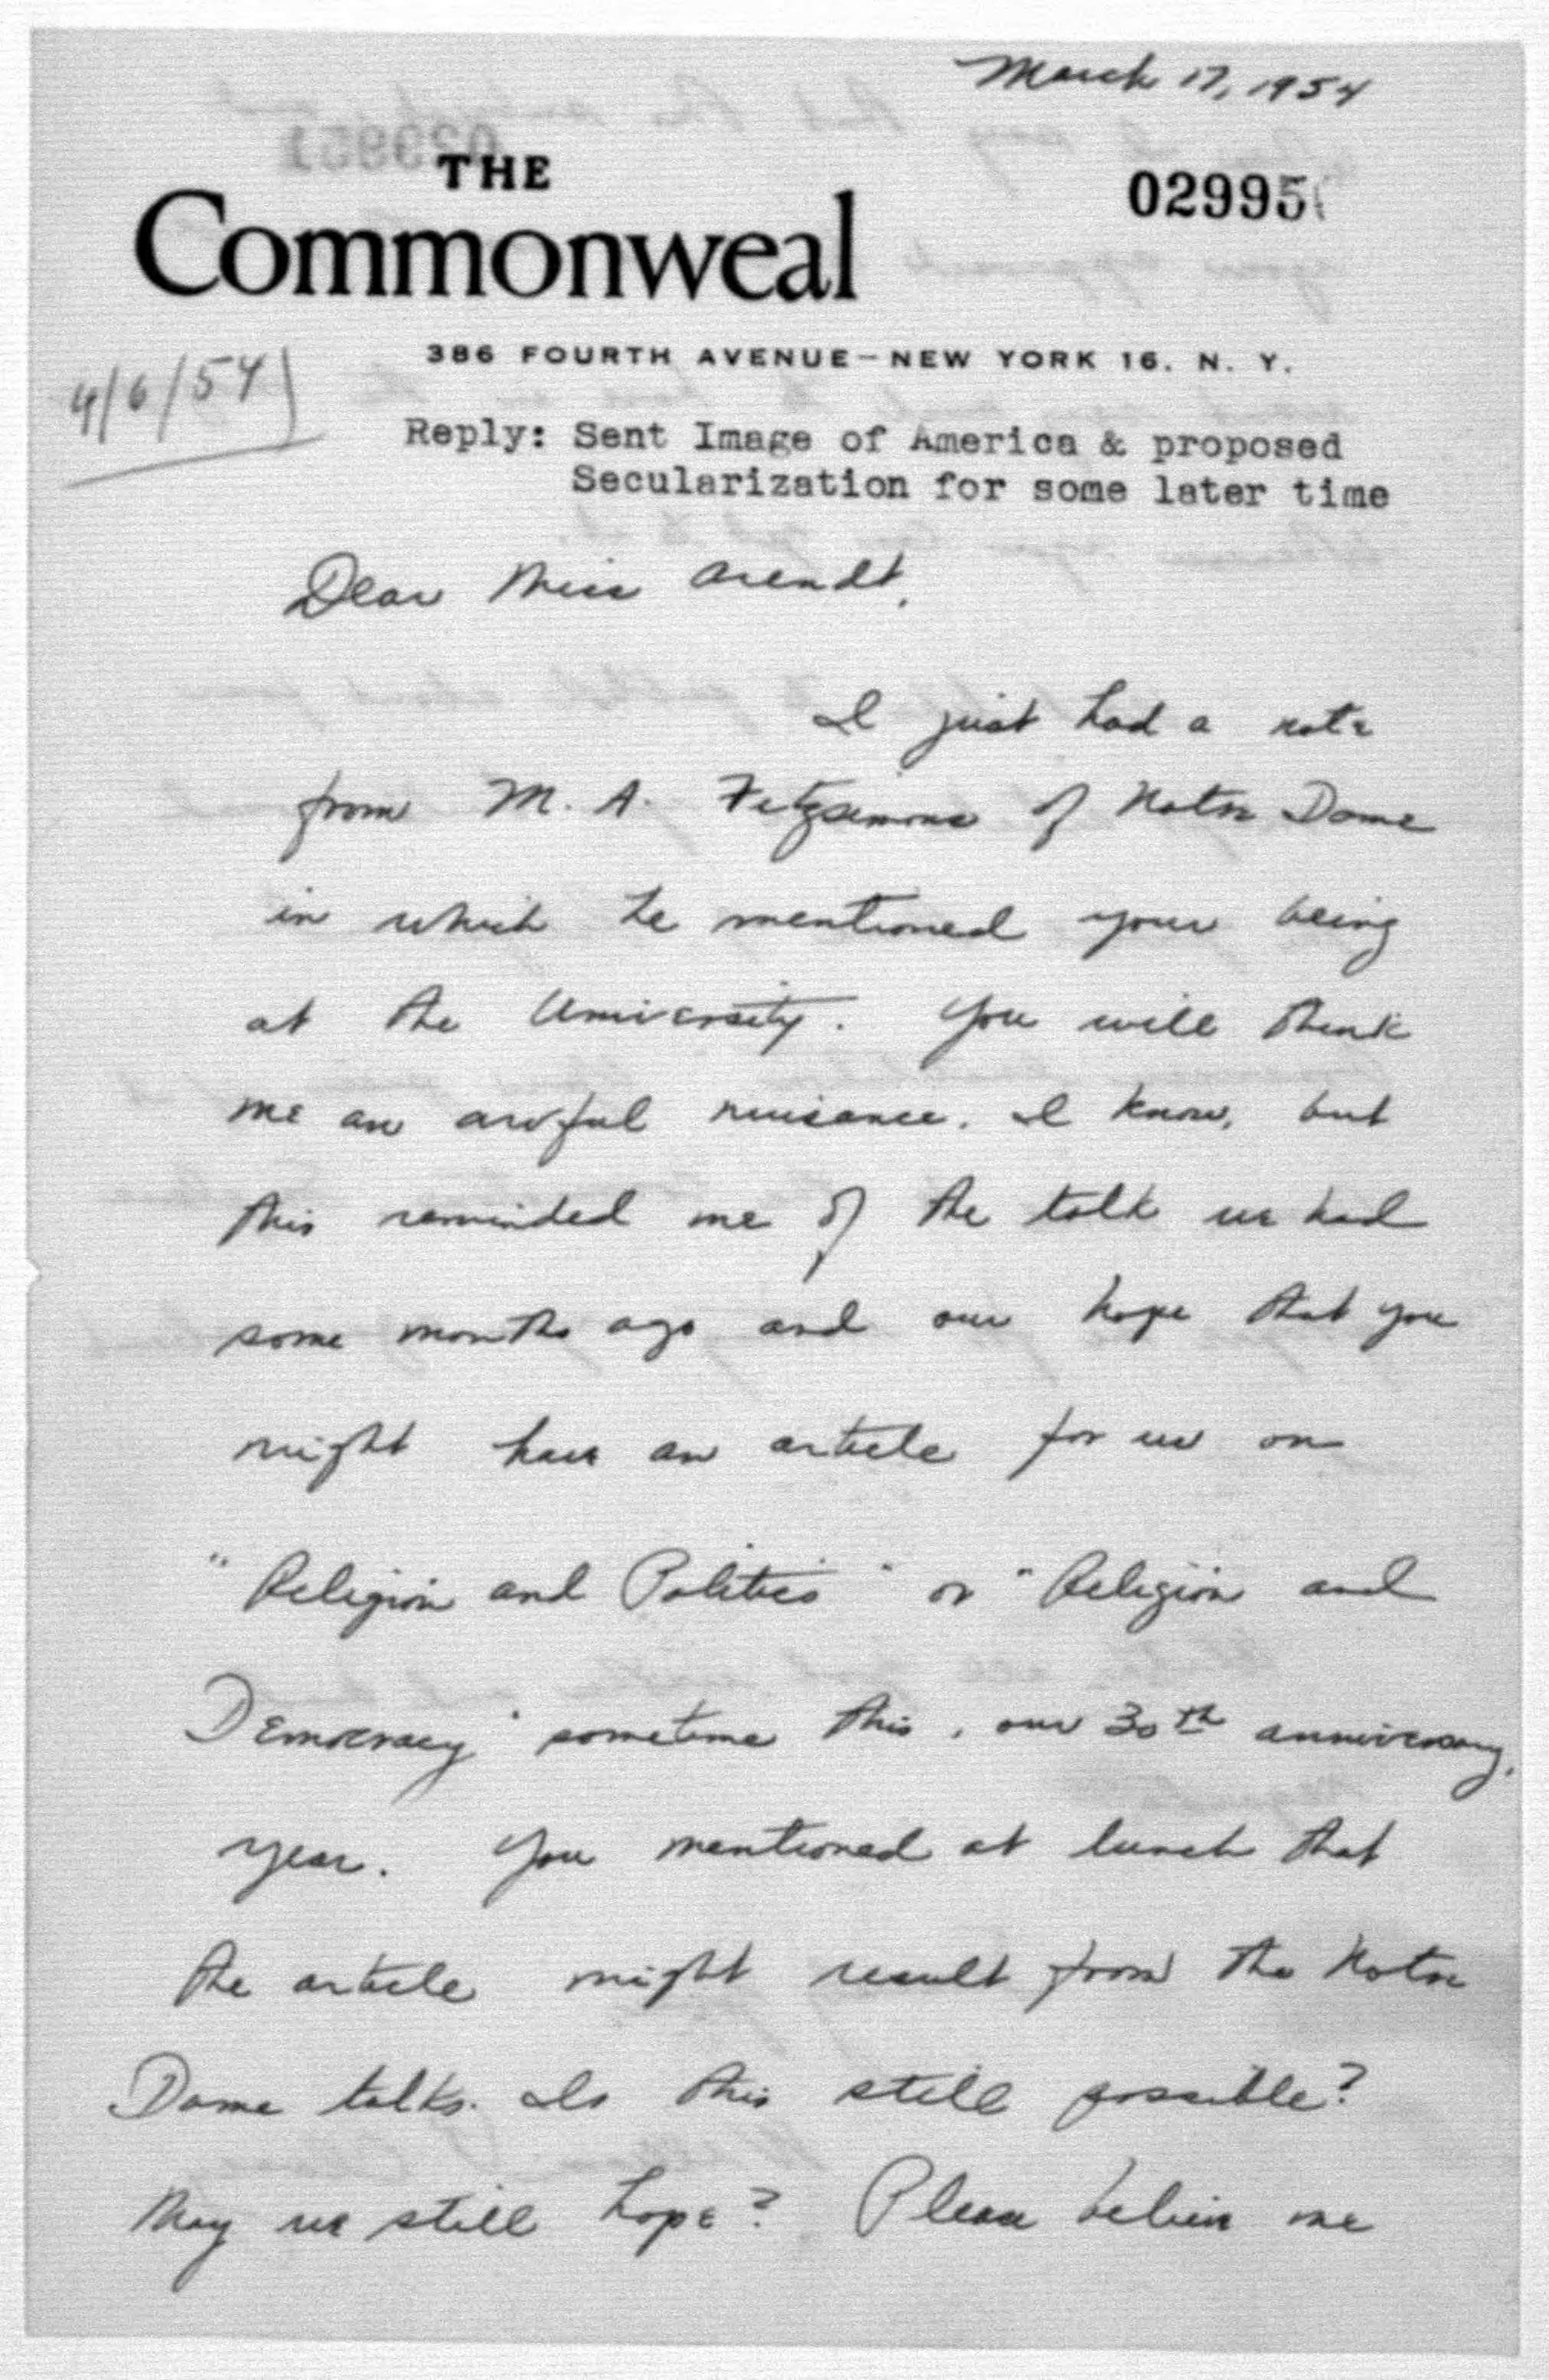 March 17, 1954
THE
Commonweal
02995
386 FOURTH AVENUE—NEW YORK 16, N. Y.
4/6/54
Reply: Sent Image of America & proposed
Secularization for some later time
Dear Miss Arendt,
I just had a note
from M. A. Fitzsimons of Notre Dame
in which he mentioned your being
at the University. You will think
me an awful nuisance, I know, but
this reminded me of the talk we had
some months ago and our hope that you
might have an article for us on
"Religion and Politics" or "Religion and
Democracy" sometime this, our 30th anniversary,
year. You mentioned at lunch that
the article might result from the Notre
Dame talks. Is this still possible?
May we still hope? Please believe me